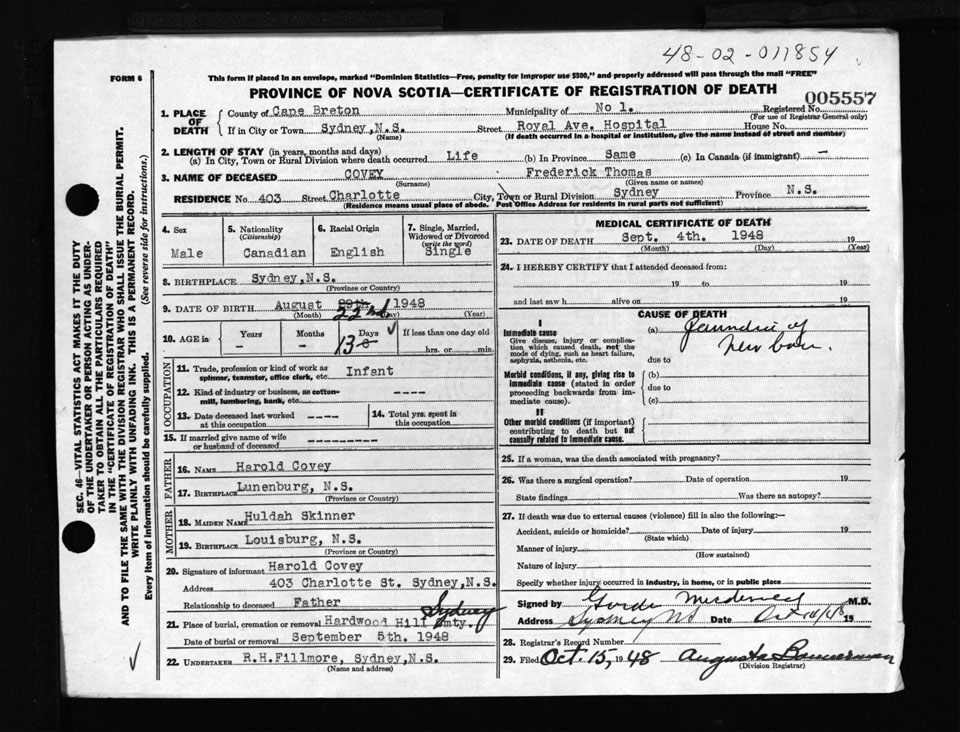 48-02-011854
FORM 6
This form if placed in an envelope, marked "Dominion Statistics—Free, penalty for improper use $300," and properly addressed will pass through the mail "FREE"
PROVINCE OF NOVA SCOTIA—CERTIFICATE OF REGISTRATION OF DEATH
005557
1. PLACE OF DEATH
County of Cape Breton Municipality of No 1. Registered No.
(For use of Registrar General only)
If in City or Town Sydney, N.S. Street Royal Ave. Hospital House No.
(Name) (If death occurred in a hospital or institution, give the name instead of street and number)
2. LENGTH OF STAY (in years, months and days)
(a) In City, Town or Rural Division where death occurred Life (b) In Province Same (c) In Canada (if immigrant) —
3. NAME OF DECEASED COVEY Frederick Thomas
(Surname) (Given name or names)
RESIDENCE No. 403 Street Charlotte City, Town or Rural Division Sydney Province N.S.
(Residence means usual place of abode. Post Office Address for residents in rural parts not sufficient)
4. Sex
Male
5. Nationality
(Citizenship)
Canadian
6. Racial Origin
English
7. Single, Married, Widowed or Divorced
(write the word)
Single
8. BIRTHPLACE Sydney, N.S.
(Province or Country)
9. DATE OF BIRTH August 29th, 1948
22nd
(Month) (Day) (Year)
10. AGE in
Years
-
Months
-
Days
13 6
If less than one day old
hrs. or min.
OCCUPATION
11. Trade, profession or kind of work as Infant
spinner, teamster, office clerk, etc.
12. Kind of industry or business, as cotton-mill, lumbering, bank, etc. ----
13. Date deceased last worked at this occupation ----
14. Total yrs. spent in this occupation
15. If married give name of wife or husband of deceased ---------
FATHER
16. NAME Harold Covey
17. BIRTHPLACE Lunenburg, N.S.
(Province or Country)
MOTHER
18. MAIDEN NAME Huldah Skinner
19. BIRTHPLACE Louisburg, N.S.
(Province or Country)
20. Signature of informant Harold Covey
Address 403 Charlotte St. Sydney, N.S.
Relationship to deceased Father
Sydney
21. Place of burial, cremation or removal Hardwood Hill Cmty.
Date of burial or removal September 5th. 1948
22. UNDERTAKER R.H.Fillmore, Sydney, N.S.
(Name and address)
MEDICAL CERTIFICATE OF DEATH
23. DATE OF DEATH Sept. 4th. 1948 19
(Month) (Day) (Year)
24. I HEREBY CERTIFY that I attended deceased from:
19 to 19
and last saw h alive on 19
CAUSE OF DEATH
I
Immediate cause
Give disease, injury or complication which caused death, not the mode of dying, such as heart failure, asphyxia, asthenia, etc.
(a) Jaundice of
new born.
due to
Morbid conditions, if any, giving rise to immediate cause (stated in order proceeding backwards from immediate cause).
(b)
due to
(c)
II
Other morbid conditions (if important) contributing to death but not causally related to immediate cause.
25. If a woman, was the death associated with pregnancy?
26. Was there a surgical operation? Date of operation 19
State findings Was there an autopsy?
27. If death was due to external causes (violence) fill in also the following:—
Accident, suicide or homicide? Date of injury 19
(State which)
Manner of injury
(How sustained)
Nature of injury
Specify whether injury occurred in industry, in home, or in public place
Signed by M.D.
Address Sydney NS Date Oct 19
28. Registrar's Record Number
29. Filed Oct. 15, 1948 Augusta Bannerman
(Division Registrar)
SEC. 46—VITAL STATISTICS ACT MAKES IT THE DUTY
OF THE UNDERTAKER OR PERSON ACTING AS UNDER-
TAKER TO OBTAIN ALL THE PARTICULARS REQUIRED
IN THE "CERTIFICATE OF REGISTRATION OF DEATH"
AND TO FILE THE SAME WITH THE DIVISION REGISTRAR WHO SHALL ISSUE THE BURIAL PERMIT.
WRITE PLAINLY WITH UNFADING INK. THIS IS A PERMANENT RECORD.
Every item of information should be carefully supplied. (See reverse side for instructions.)